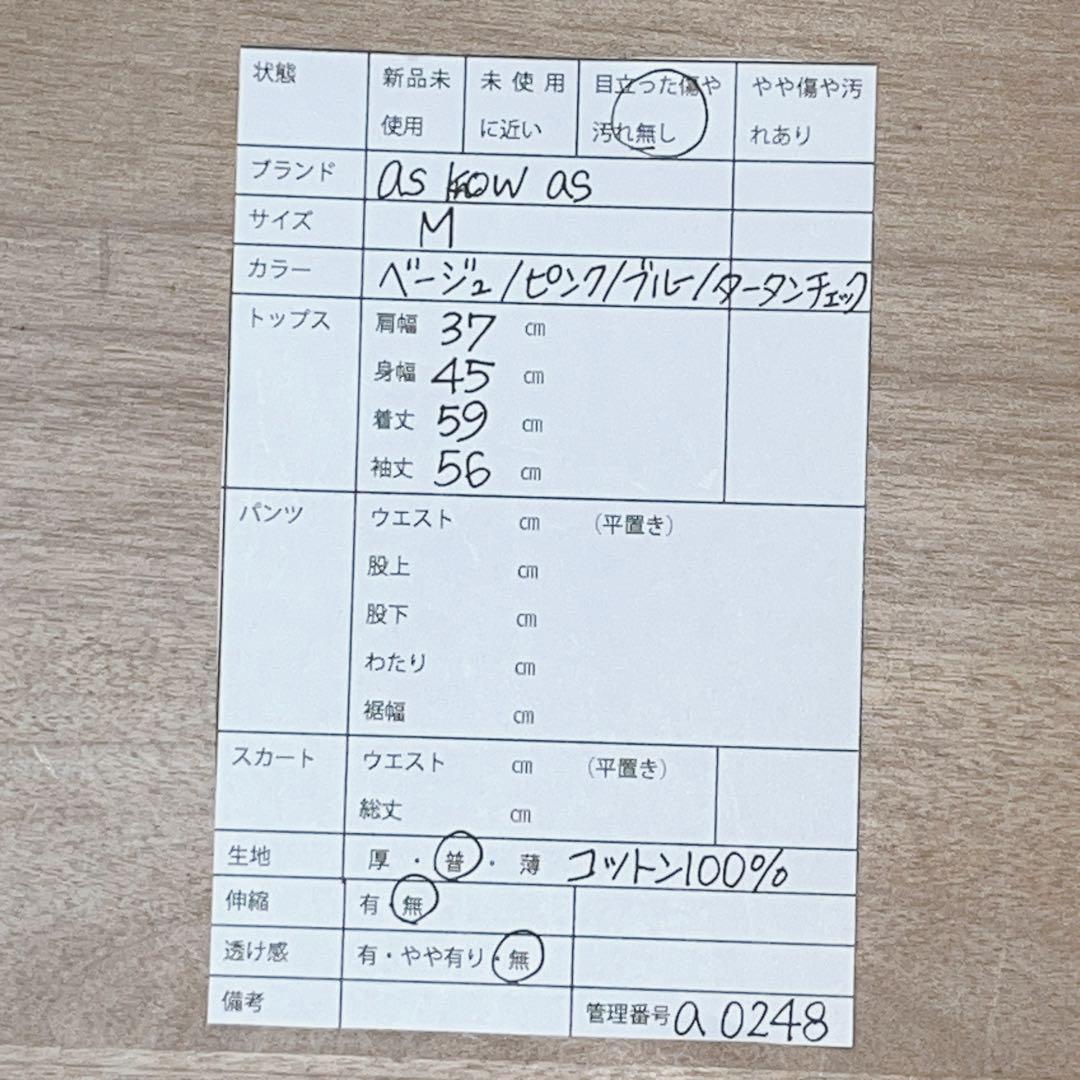 状態 新品未使用 未使用に近い 目立った傷や汚れ無し やや傷や汚れあり
ブランド as know as
サイズ M
カラー ベージュ/ピンク/ブルー/タータンチェック
トップス 肩幅 37 cm
身幅 45 cm
着丈 59 cm
袖丈 56 cm
パンツ ウエスト cm (平置き)
股上 cm
股下 cm
わたり cm
裾幅 cm
スカート ウエスト cm (平置き)
総丈 cm
生地 厚・普・薄 コットン100%
伸縮 有・無
透け感 有・やや有り・無
備考 管理番号 a 0248